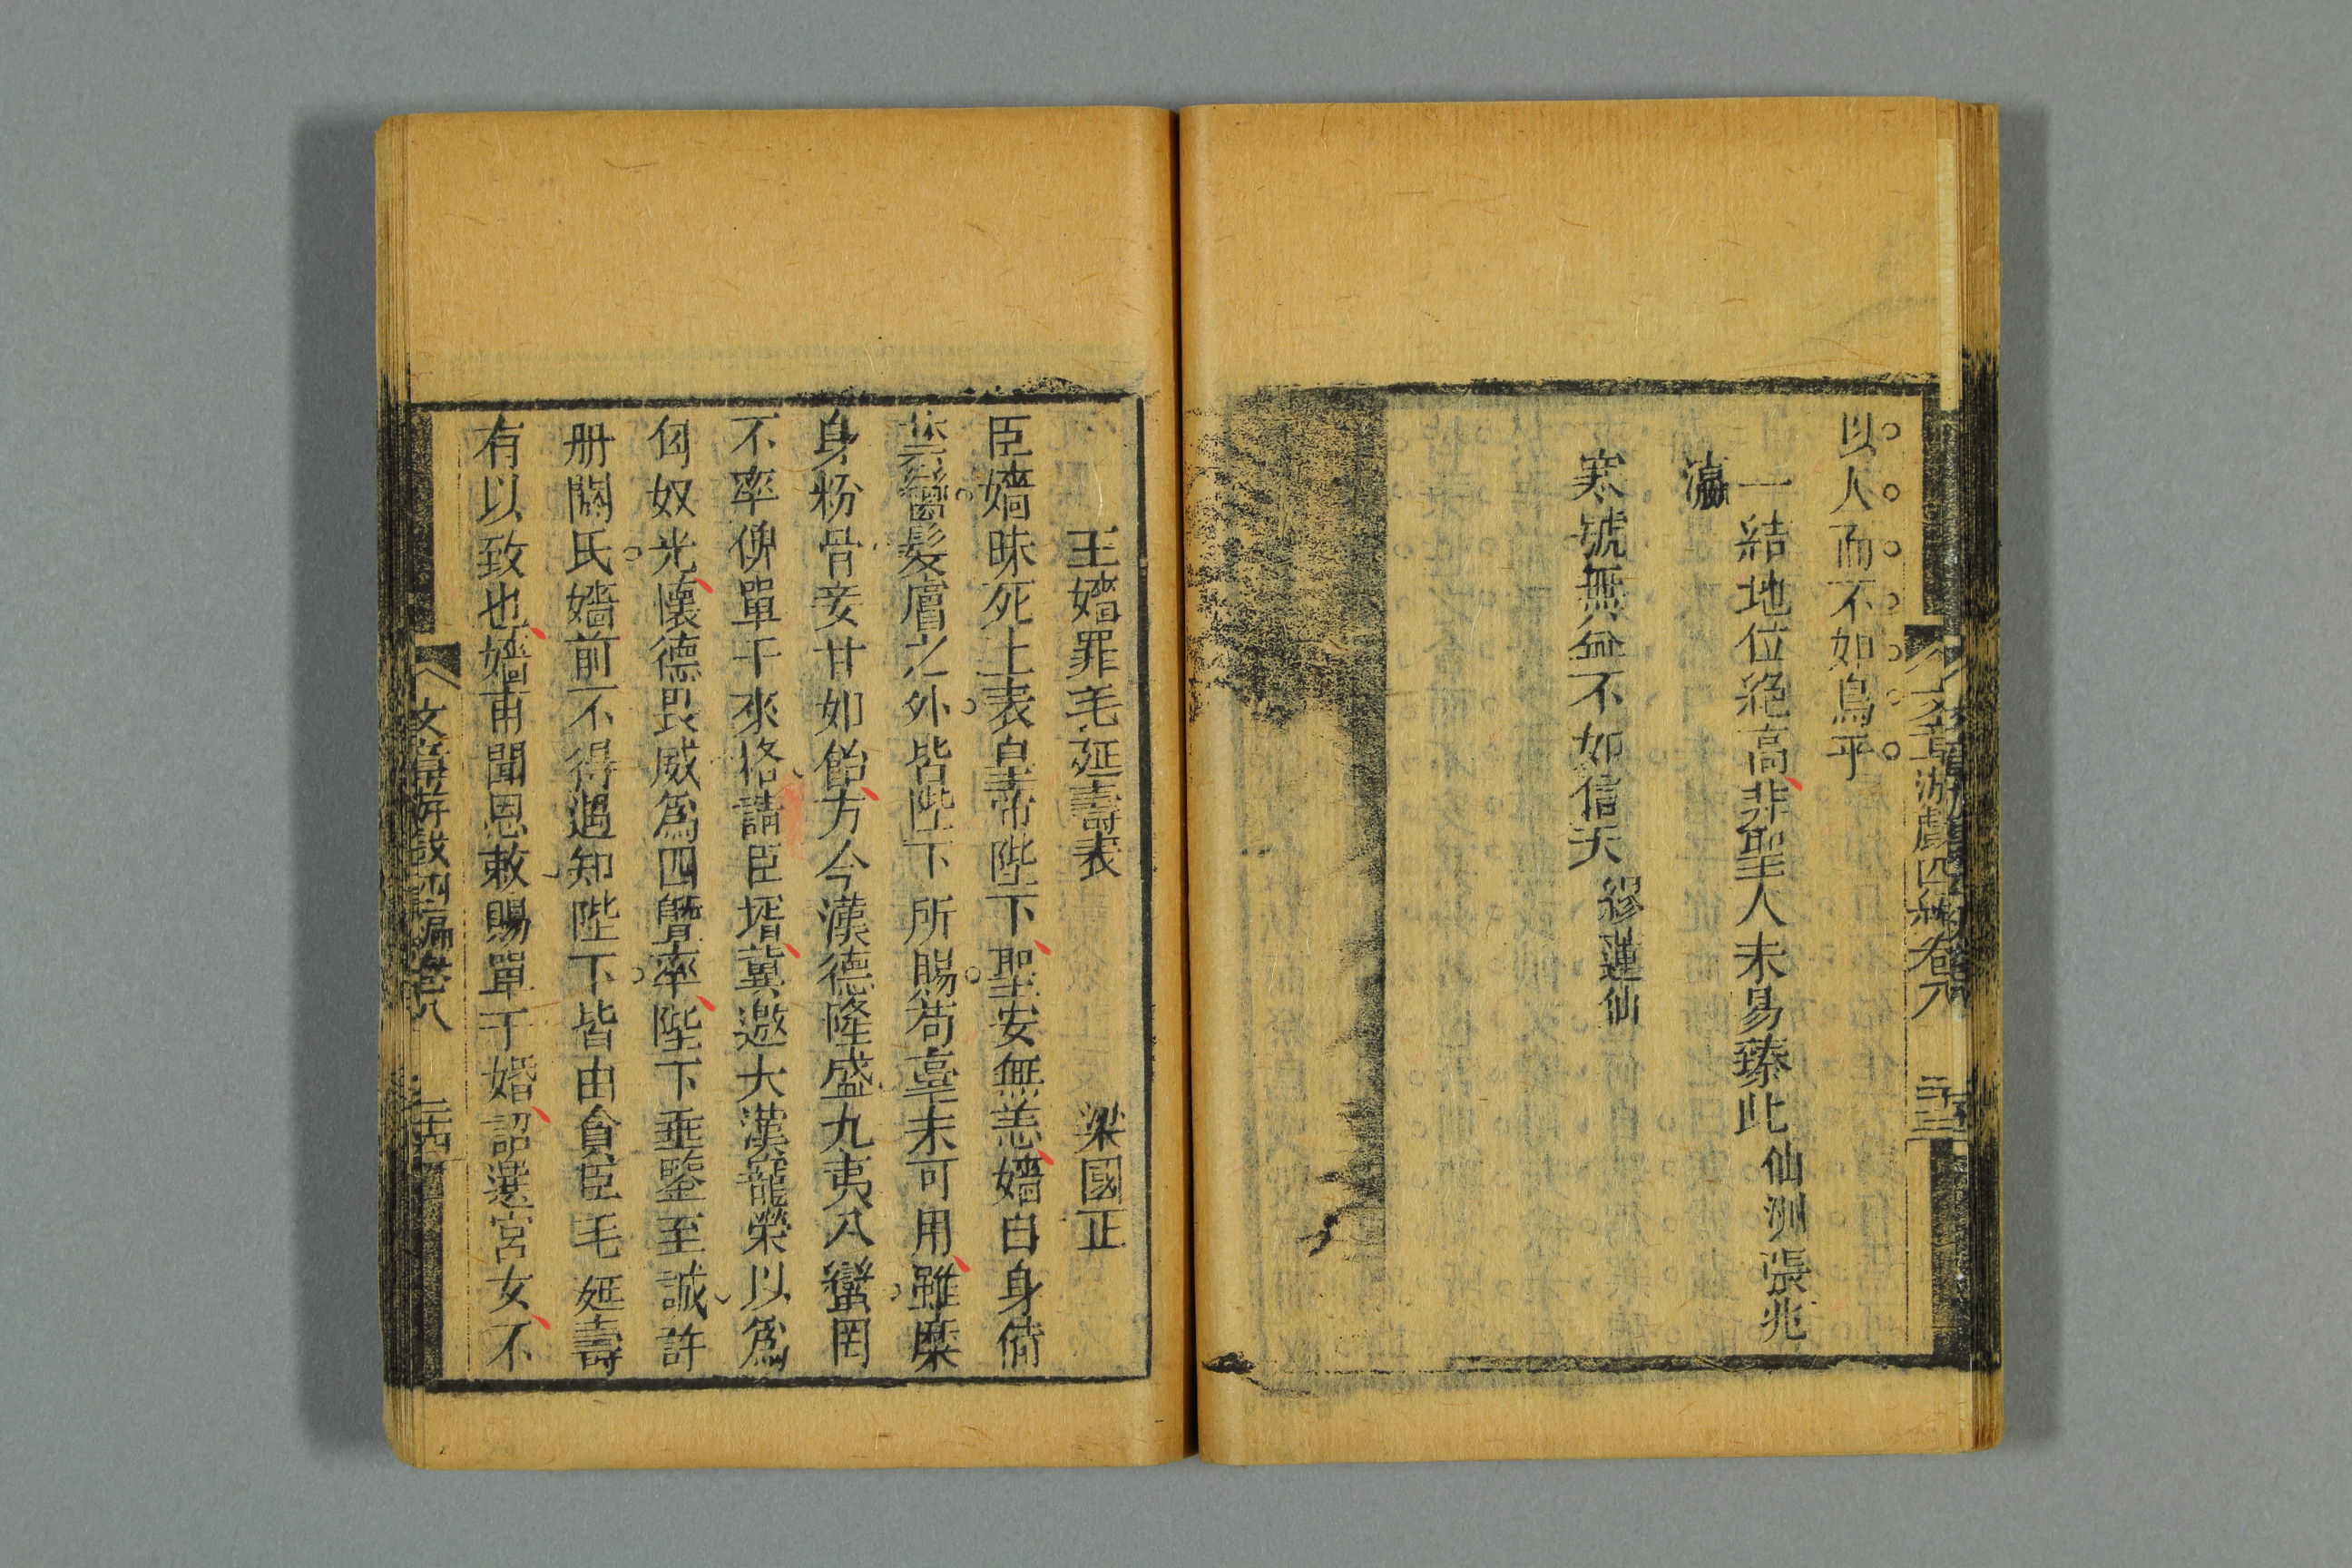 以人而不如鳥乎
一結地位絕高非聖人未易臻此仙洲張兆
瀛
寒號無益不如信天繆蓮仙
文章游戲四編卷八
王嬙罪毛延壽表
梁國正
臣嬙昧死上表皇帝陛下聖安無恙嬙自身倚
禁臠髮膚之外皆陛下所賜苟臺未可用雖糜
身粉骨妾甘如飴方今漢德隆盛九夷八蠻罔
不率俾單于來格請臣壻冀邀大漢寵榮以爲
匈奴光懷德畏威爲四曁率陛下垂鑒至誠許
册閼氏嬙前不得遇知陛下皆由貪臣毛延壽
有以致也嬙甫聞恩敕賜單于婚詔選宮女不
文章游戲四編卷八
二十四